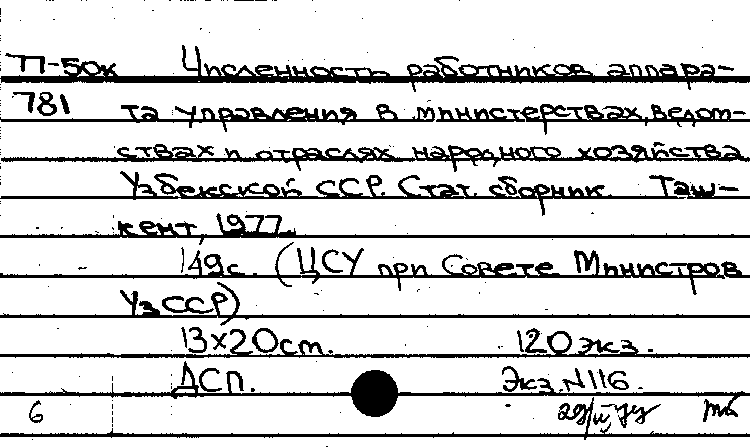 П-50к Численность работников аппара-
781 та управления в министерствах, ведом-
ствах и отраслях народного хозяйства
Узбекской ССР. Стат. сборник. Таш-
кент, 1977.
149с. (ЦСУ при Совете Министров
УзССР)
13x20cm. 120 экз.
ДСП. Экз. N116.
6